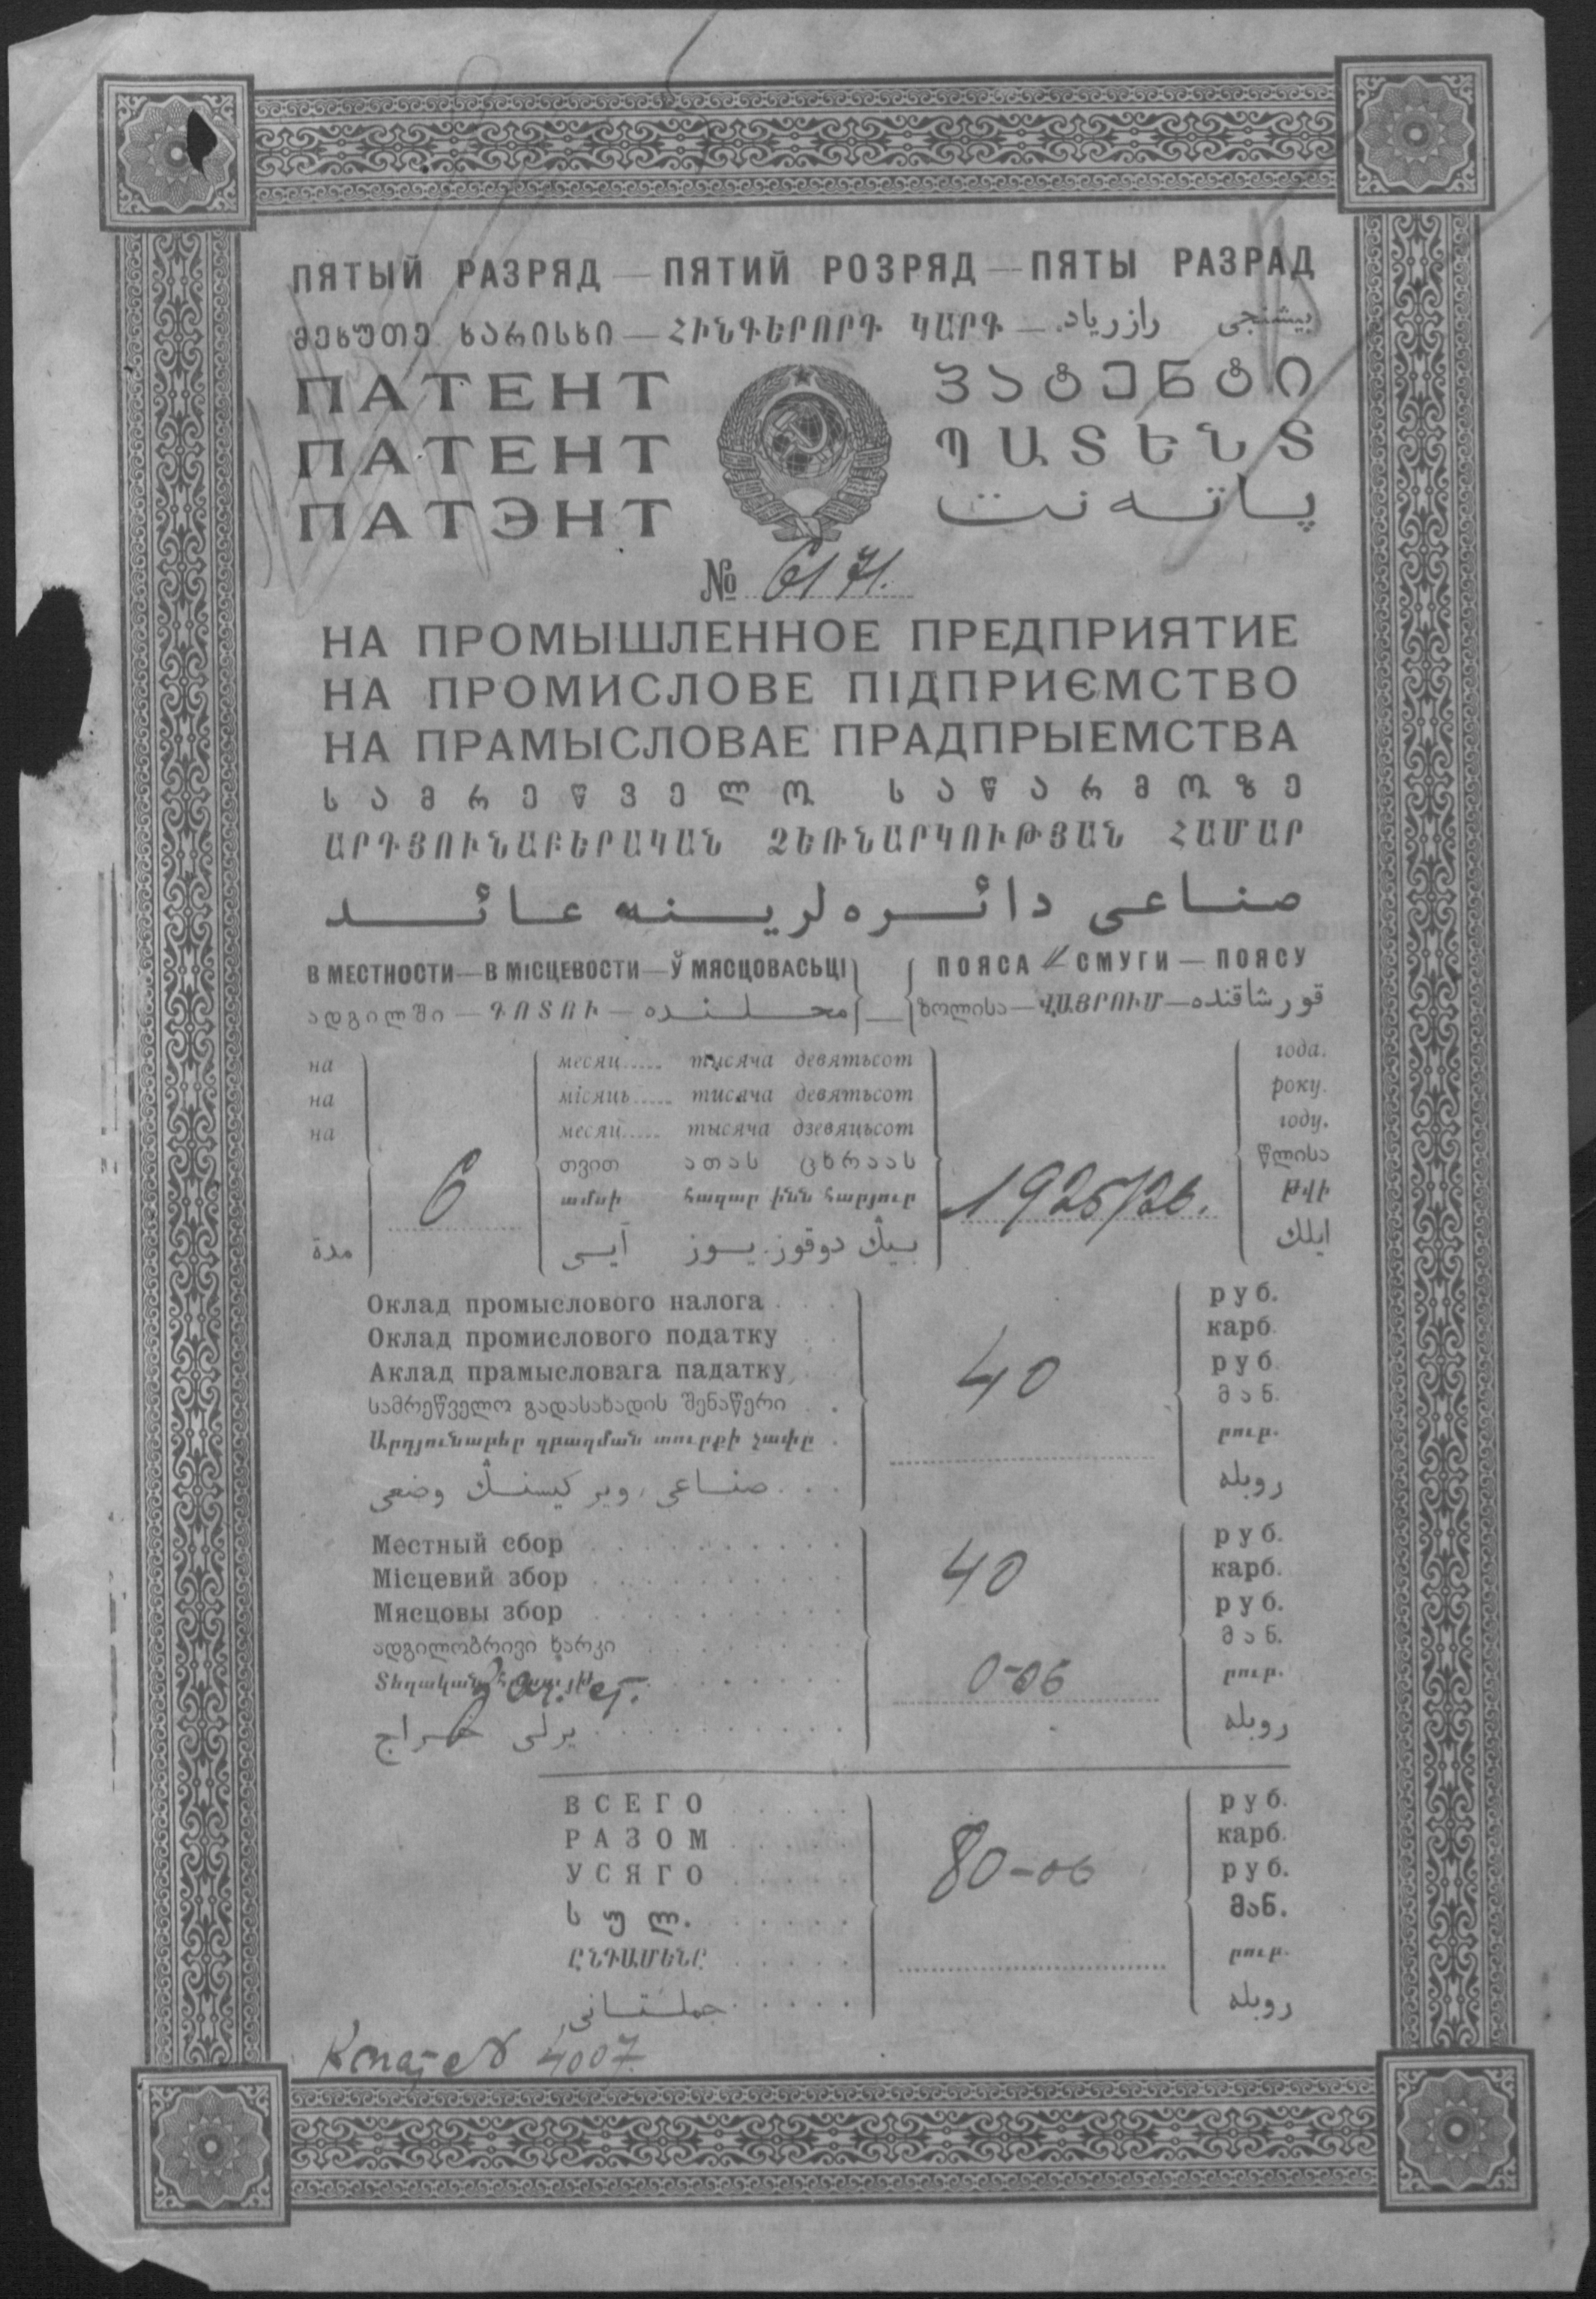 ПЯТЫЙ РАЗРЯД — ПЯТИЙ РОЗРЯД — ПЯТЫ РАЗРАД
მეხუთე ხარისხი — ՀԻՆԳԵՐՈՐԴ ԿԱՐԳ — بیشنجی رازریاد
ПАТЕНТ
ПАТЕНТ
ПАТЭНТ
ᲞᲐᲢᲔᲜᲢᲘ
ՊԱՏԵՆՏ
پاتەنت
№ 6171.
НА ПРОМЫШЛЕННОЕ ПРЕДПРИЯТИЕ
НА ПРОМИСЛОВЕ ПІДПРИЄМСТВО
НА ПРАМЫСЛОВАЕ ПРАДПРЫЕМСТВА
სამრეწველო საწარმოზე
ԱՐԴՅՈՒՆԱԲԵՐԱԿԱՆ ՁԵՌՆԱՐԿՈՒԹՅԱՆ ՀԱՄԱՐ
صناعی دائره لرینه عائد
В МЕСТНОСТИ — В МІСЦЕВОСТИ — Ў МЯСЦОВАСЬЦІ
ადგილში — ԳՈՏՈՒ — محلنده
ПОЯСА — СМУГИ — ПОЯСУ
ზოლისა — ՎԱՅՐՈՒՄ — قورشاقنده
на
на
на
مدة
6
месяц..... тысяча девятьсот
місяць..... тисяча девятьсот
месяц..... тысяча дзевяцьсот
თვით ათას ცხრაას
ամսի հազար ինն հարյուր
آیسی بیڭ دوقوز یوز
1925/26.
года.
року.
году.
წლისა
թվի
ایلك
Оклад промыслового налога
Оклад промислового податку
Аклад прамысловага падатку
სამრეწველო გადასახადის შენაწერი
Արդյունաբեր զբաղման տուրքի չափը
صناعی ویرکیسنڭ وضعی
40
руб.
карб.
руб.
მან.
րուբ.
روبله
Местный сбор
Місцевий збор
Мясцовы збор
ადგილობრივი ხარკი
Տեղական
یرلی خراج
40
0-06
руб.
карб.
руб.
მან.
րուբ.
روبله
ВСЕГО
РАЗОМ
УСЯГО
სულ.
ԸՆԴԱՄԵՆԸ
جملتانی
80-06
руб.
карб.
руб.
მან.
րուբ.
روبله
4007